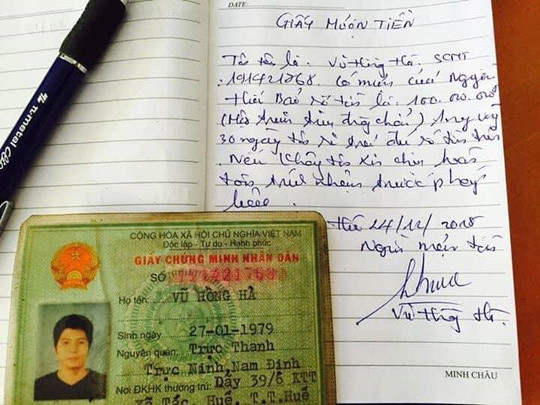 DATE:
GIẤY MƯỢN TIỀN
Tôi tên là Vũ Hồng Hà. SCMT
191421768. Có mượn của Nguyễn
Thái Bảo số tiền là 100.000.000
(Một trăm triệu đồng chẵn)
30 ngày tôi sẽ trả đủ số tiền trên
Nếu tôi xin chịu hoàn
toàn trách nhiệm trước pháp
luật
Huế 24/12/2018
Người mượn tiền
Vũ Hồng Hà.
MINH CHÂU
CỘNG HÒA XÃ HỘI CHỦ NGHĨA VIỆT NAM
Độc lập - Tự do - Hạnh phúc
GIẤY CHỨNG MINH NHÂN DÂN
SỐ 191421768
Họ tên: VŨ HỒNG HÀ
Sinh ngày 27-01-1979
Nguyên quán: Trực Thanh
Trực Ninh, Nam Định
Nơi ĐKHK thường trú: Dãy 39/6 KTT
Xã Tắc, Huế, T.T.Huế